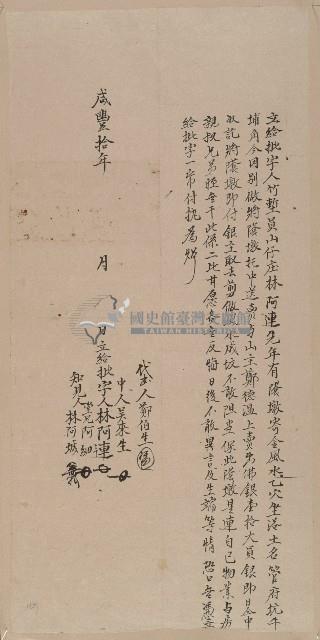 立給批字人竹塹員山仔庄林阿連先年有陰墩寄金風水乙穴坐落土名管府坑牛
埔角今因別做將陰墩托中送與山主鄭穗溫上賣出佛銀壹拾大員銀即日仝中
收訖將陰墩即付銀主取去剪做成坟不敢阻當保此陰墩是連自己物業与房
親叔兄弟姪無干此係二比甘愿各無反悔日後不敢異言及生端等情恐口無憑立
給批字一帋付执為炤
代筆人鄭伯生
中人吳來生
知見人林阿城
咸豐拾年 月 日立給批字人林阿連
國史館臺灣文獻館